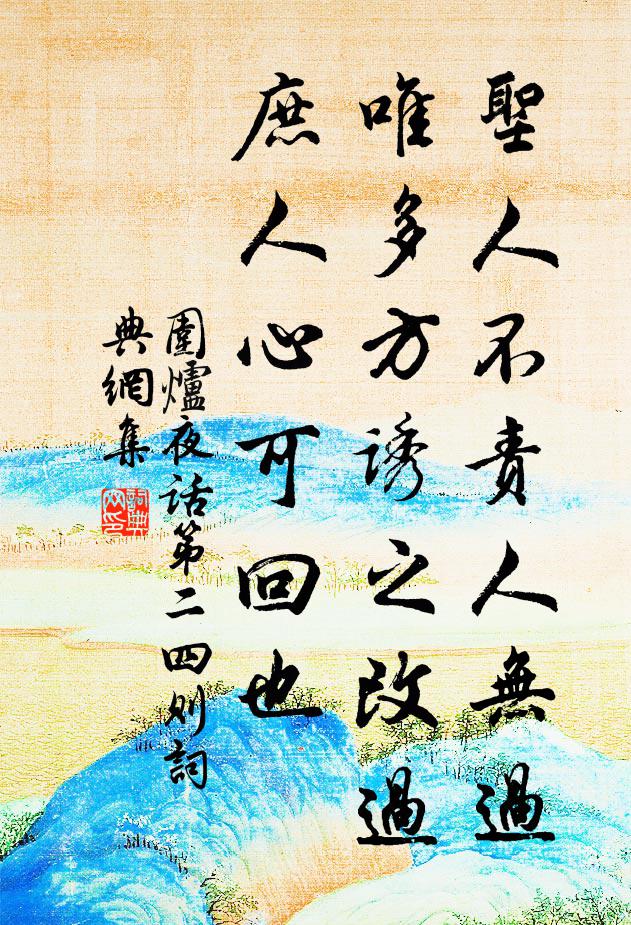 聖人不責人無過
唯多方誘之改過
庶人心可回也
圍爐夜話第二四則詞
典網集
詞典